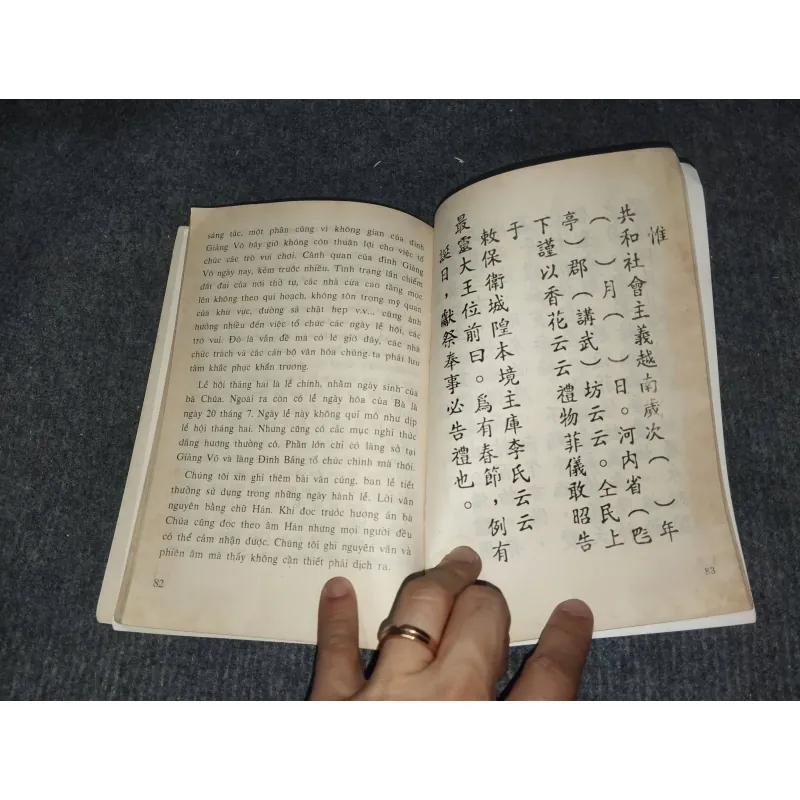 sáng tác, một phần cũng vì không gian của đình
Giảng Võ bây giờ không còn thuận lợi cho việc tổ
chức các trò vui chơi. Cảnh quan của đình Giảng
Võ ngày nay, kém trước nhiều. Tình trạng lấn chiếm
đất đai của nơi thờ tự, các nhà cửa cao tầng mọc
lên không theo qui hoạch, không tôn trọng mỹ quan
của khu vực, đường sá chật hẹp v.v... cũng ảnh
hưởng nhiều đến việc tổ chức các ngày lễ hội, các
trò vui. Đó là vấn đề mà có lẽ giờ đây, các nhà
chức trách và các cán bộ văn hóa chúng ta phải lưu
tâm khắc phục khẩn trương.
Lễ hội tháng hai là lễ chính, nhằm ngày sinh của
bà Chúa. Ngoài ra còn có lễ ngày hóa của Bà là
ngày 20 tháng 7. Ngày lễ này không qui mô như dịp
lễ hội tháng hai. Nhưng cũng có các mục nghi thức
dâng hương thường có. Phần lớn chỉ có làng sở tại
Giảng Võ và làng Đình Bảng tổ chức chính mà thôi.
Chúng tôi xin ghi thêm bài văn cúng, ban lễ tiết
thường sử dụng trong những ngày hành lễ. Lời văn
nguyên bằng chữ Hán. Khi đọc trước hương án bà
Chúa cũng đọc theo âm Hán nhưng mọi người đều
có thể cảm nhận được. Chúng tôi ghi nguyên văn và
phiên âm mà thấy không cần thiết phải dịch ra.
82
惟
共和社會主義越南歲次（ ）年
（ ）月（ ）日。河内省（巴
亭）郡（講武）坊云云。仝民上
下謹以香花云云禮物菲儀敢昭告
于
敕保衛城隍本境主庫李氏云云
最靈大王位前曰。爲有春節，例有
誕日，獻祭奉事必告禮也。
83